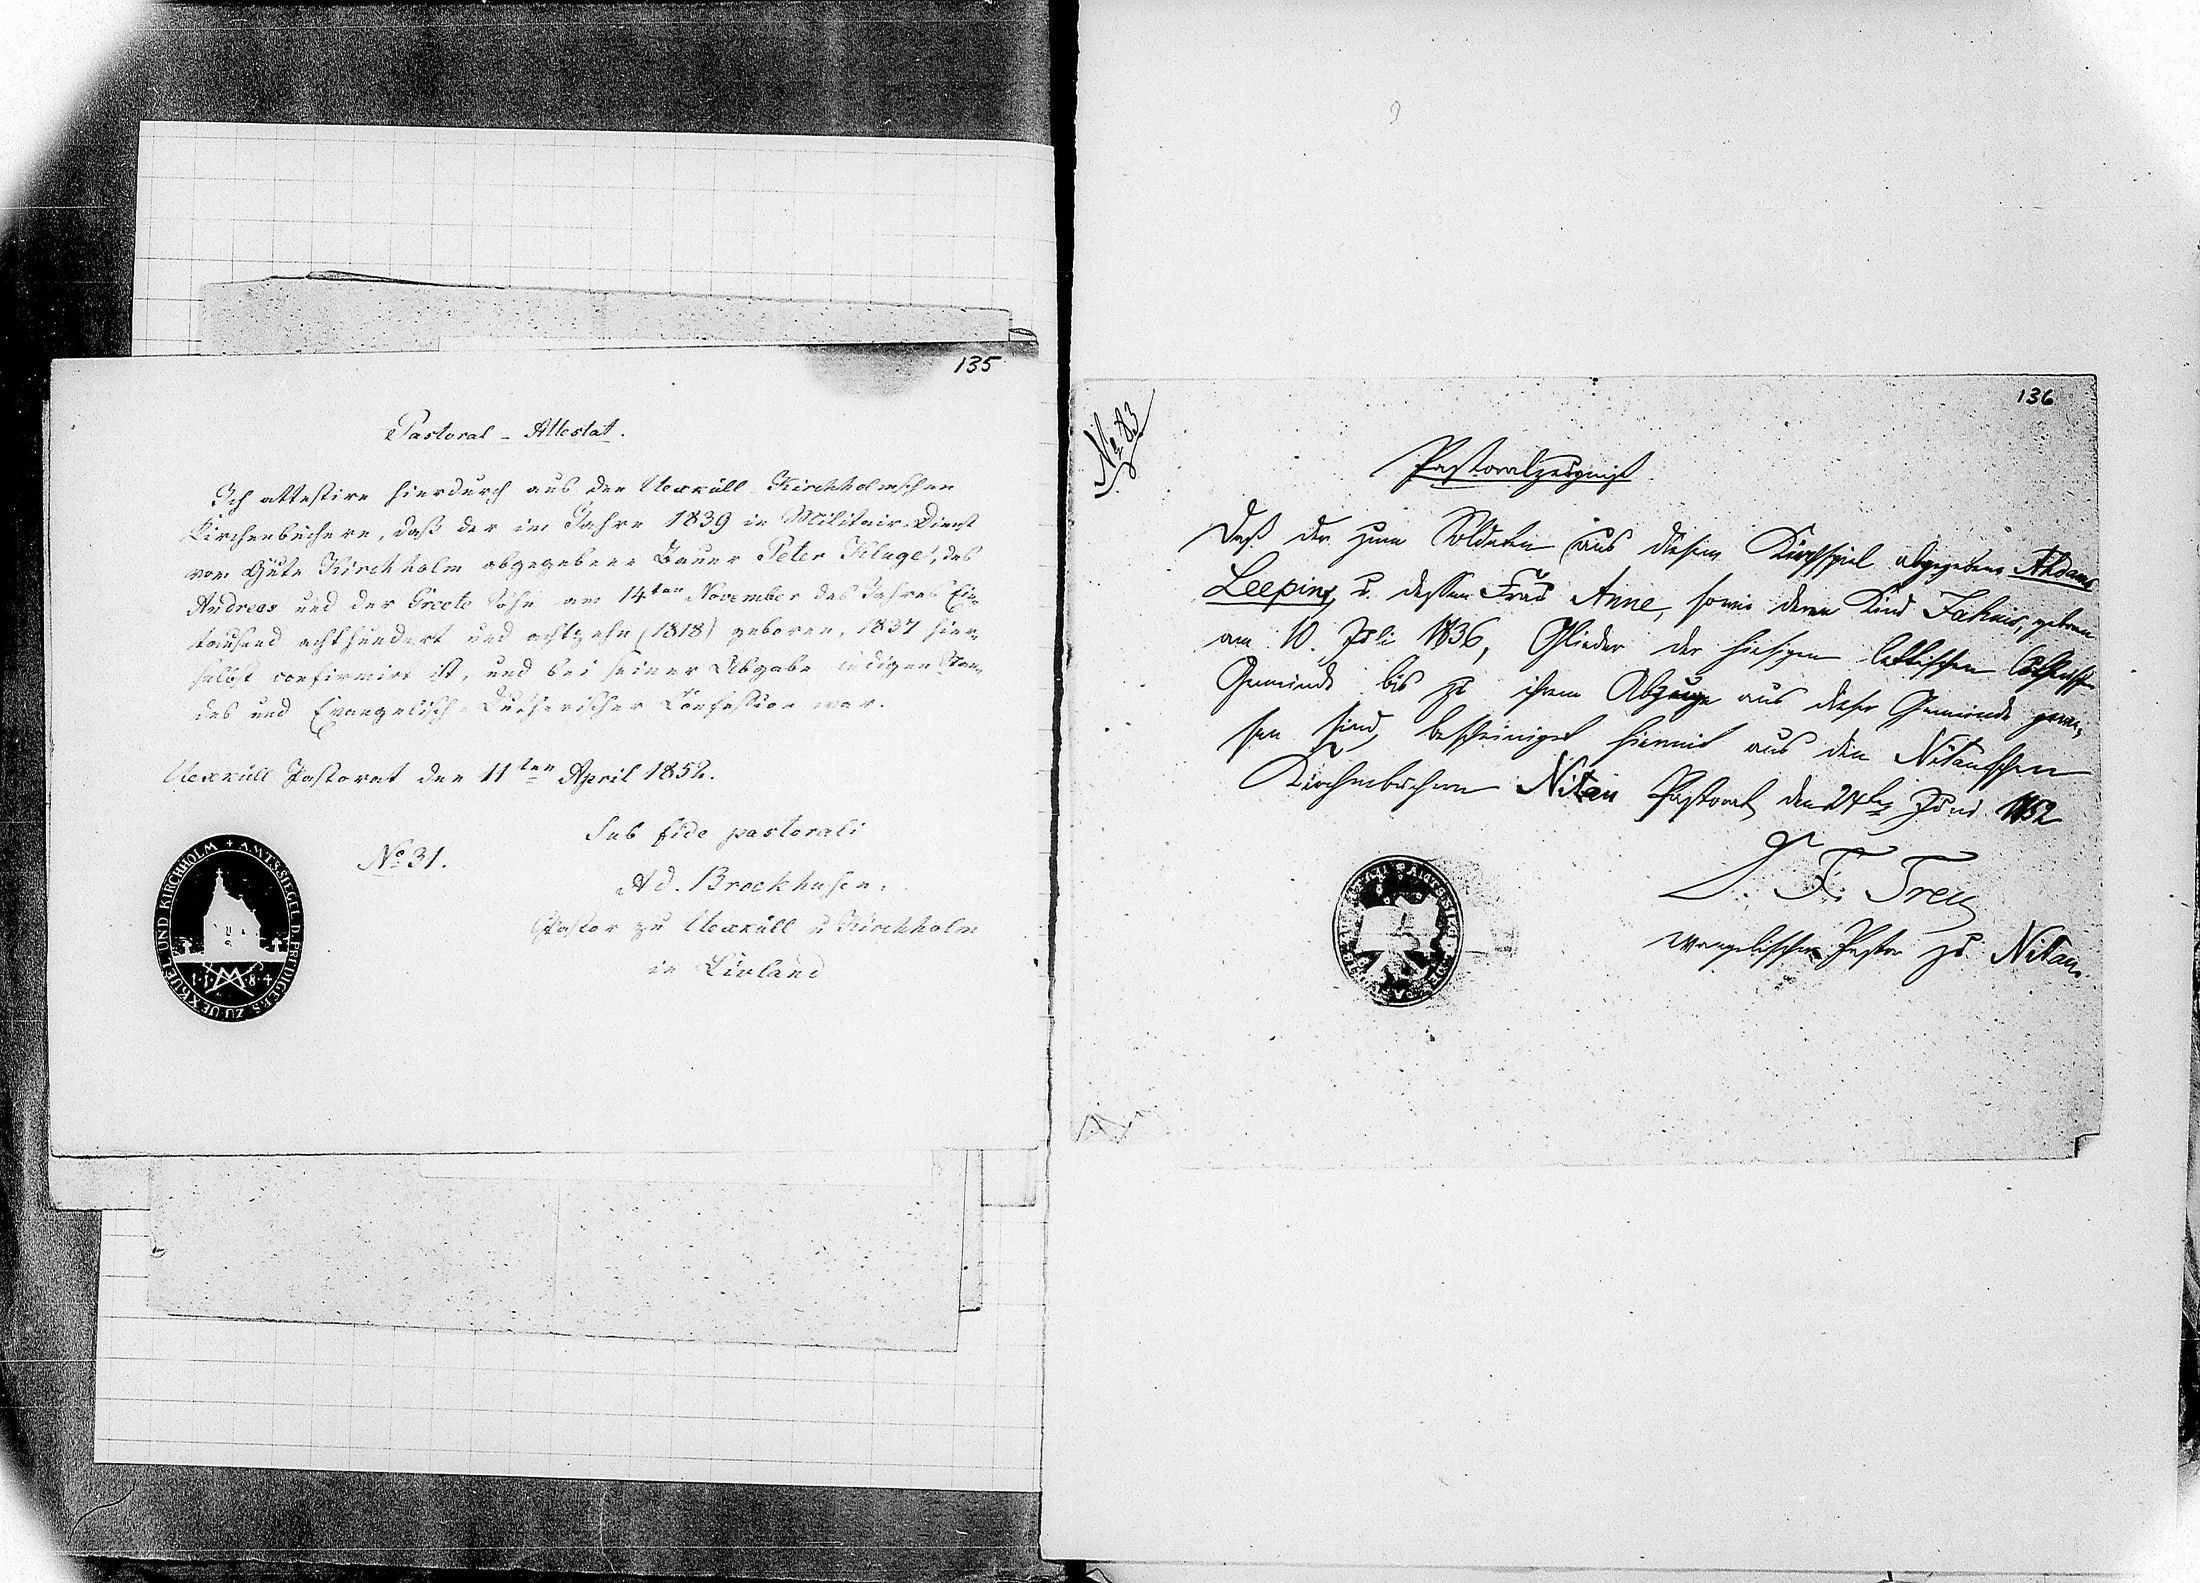 135
Pastoral-Attestat.
Ich attestire hierdurch aus den Uexküll-Kirchholmschen
Kirchenbüchern, daß der im Jahre 1839 in Militair-Dienst
vom Gute Kirchholm abgegebene Bauer Peter Kluge, des
Andreas und der Greete Sohn am 14ten November des Jahres Ein-
tausend achthundert und achtzehn (1818) geboren, 1837 hier-
selbst confirmirt ist, und bei seiner Abgabe ledigen Stan-
des und Evangelisch-Lutherischer Confession war.
Uexküll Pastorat den 11ten April 1852.
No 31.
Sub fide pastorali
Ad. Brockhusen,
Pastor zu Uexküll u Kirchholm
in Livland
AMTSSIEGEL D. PREDIGERS ZU UEXKUEL UND KIRCHHOLM
136
No 83
Pastoralzeugniß
Daß der zum Soldaten aus diesem Kirchspiel abgegebene
Leeping u. dessen Frau Anne, sowie deren Kind Jahnis, geboren
am 10. Juli 1836, Glieder der hiesigen lettischen
Gemeinde bis zu ihrem Abzuge aus dieser Gemeinde gewe-
sen sind, bescheiniget hiermit aus den Nitauschen
Kirchenbüchern Nitau Pastorat den 24ten Juni 1852
F. Treu
evangelischer Pastor zu Nitau.